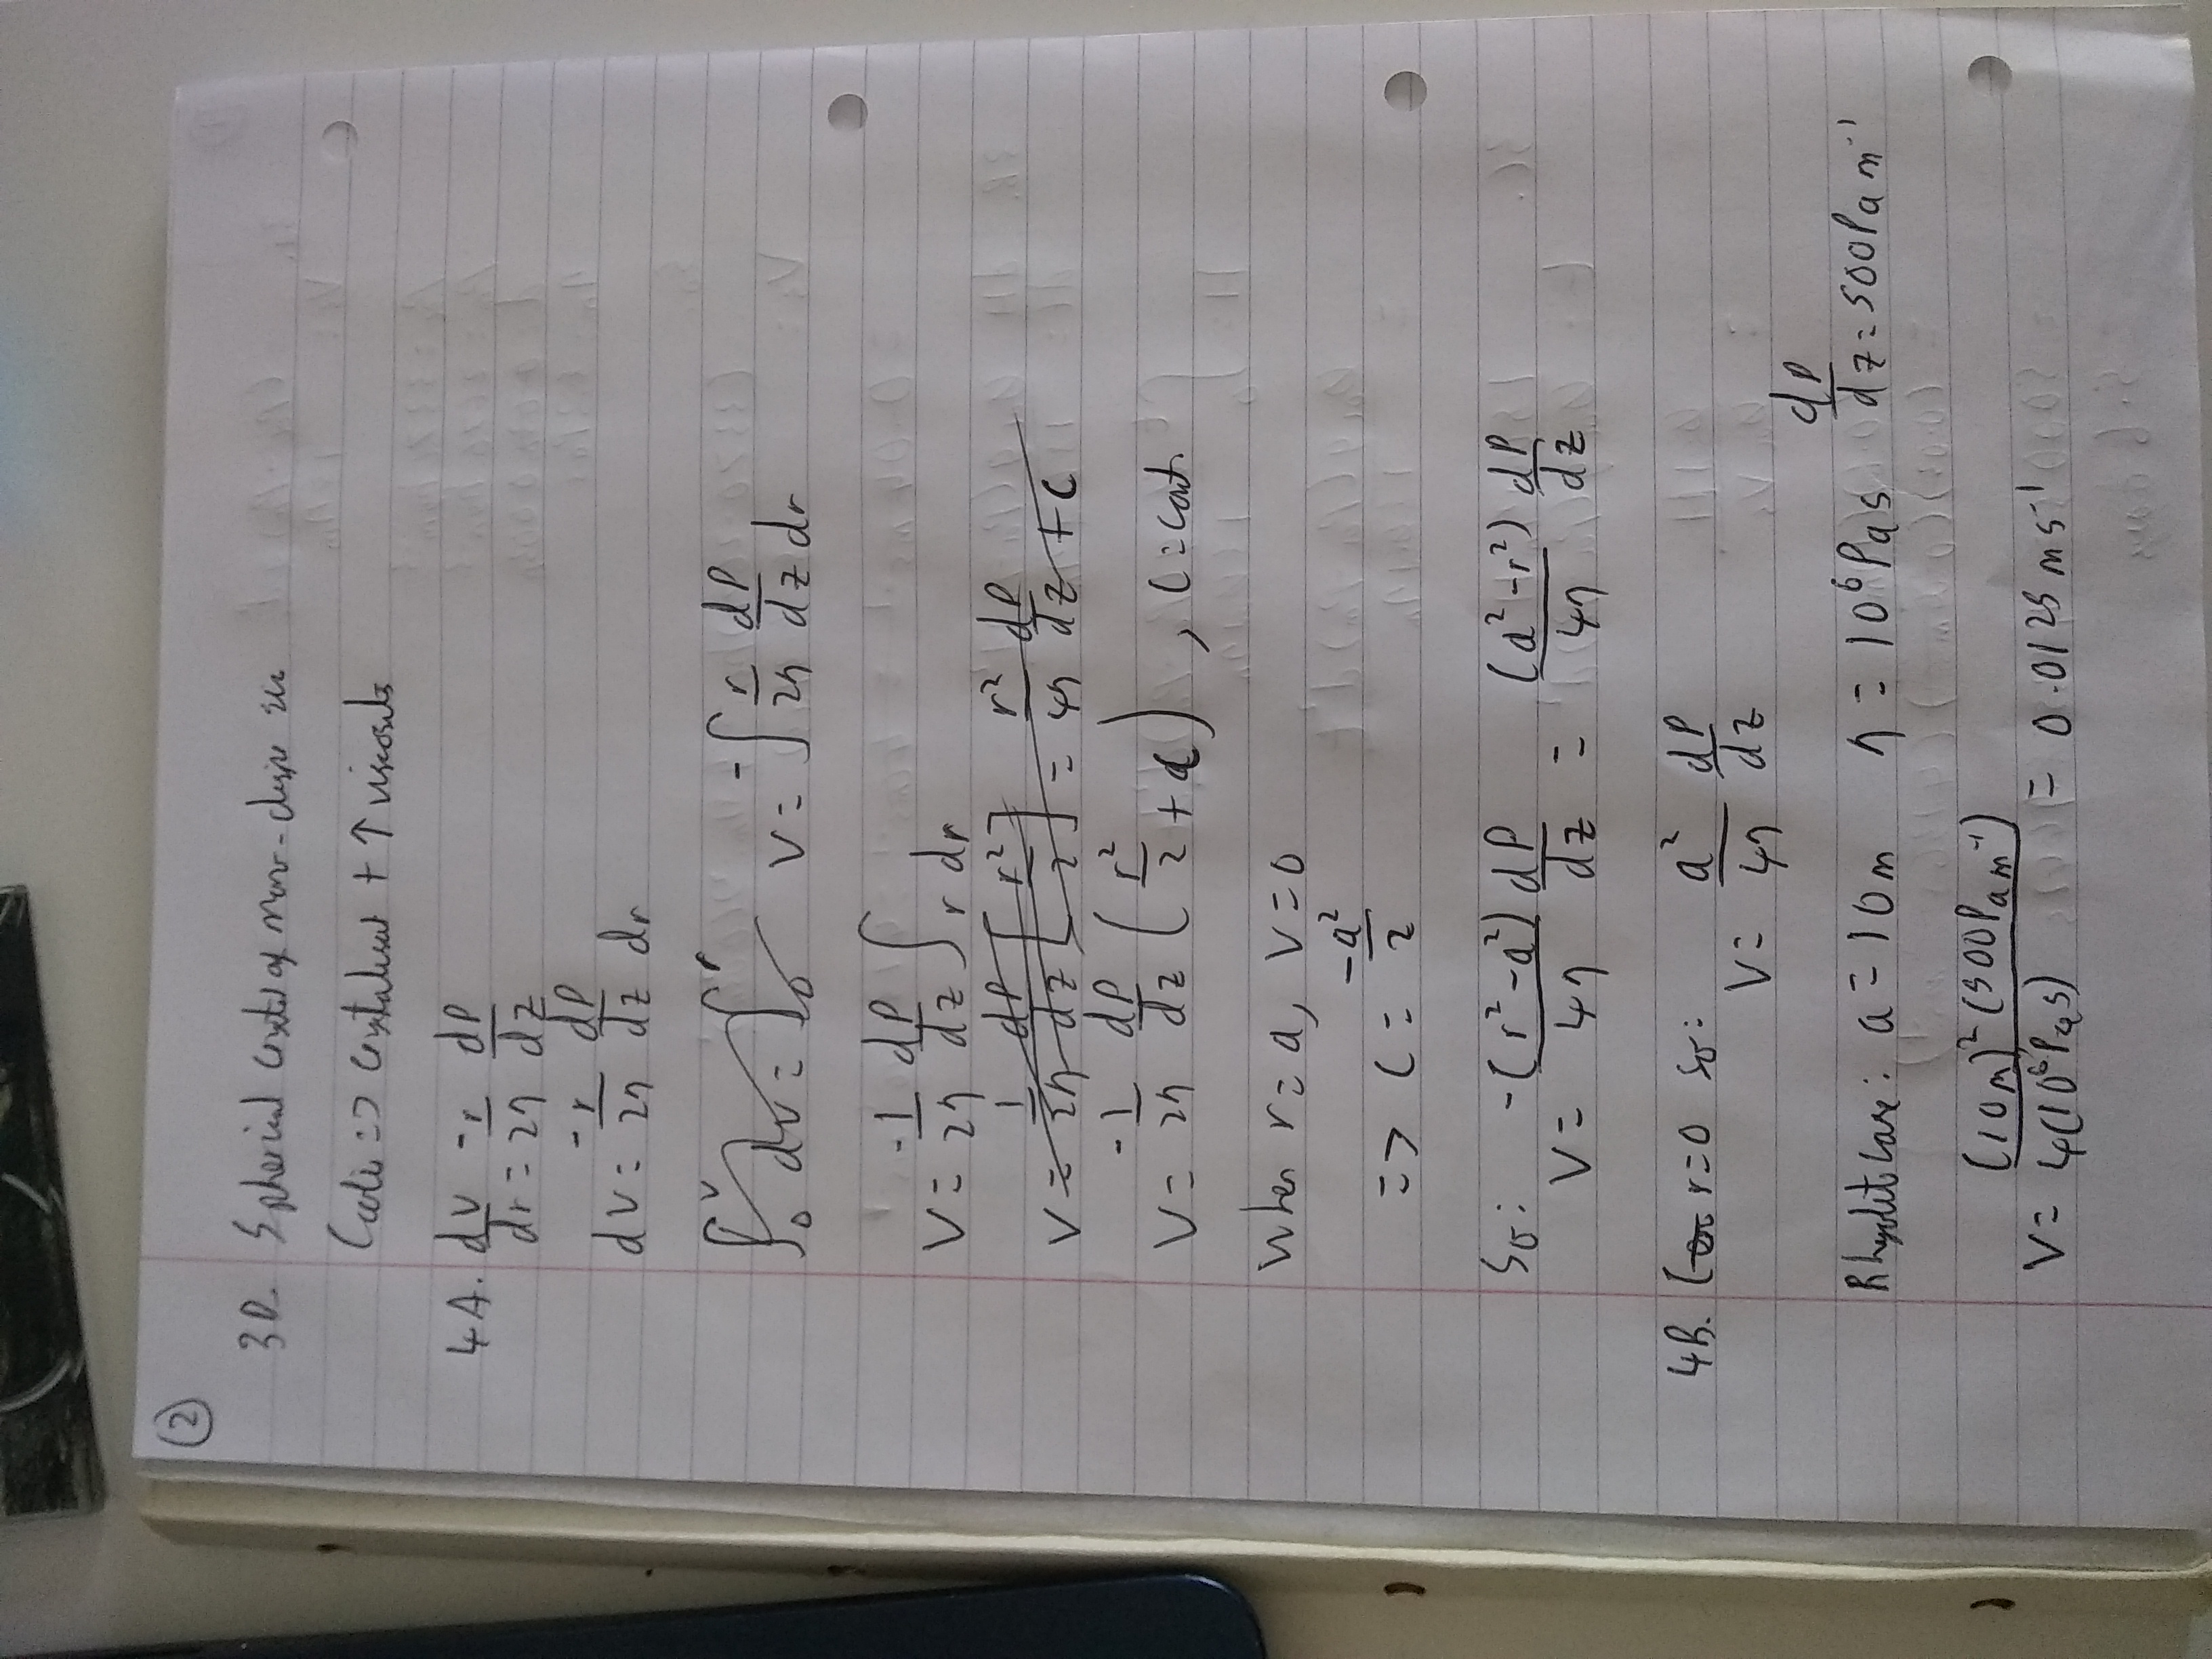 ②
3D. Spherical crystal of mono-disperse size
Cooling => crystallisat + ↑ viscosity
4A. dv/dr = -r/2η dP/dz
dv = -r/2η dP/dz dr
∫₀^v dv = ∫₀^r v = -∫ r/2η dP/dz dr
v = -1/2η dP/dz ∫ r dr
v = 1/2η dP/dz [r²/2] = r²/4η dP/dz + c
v = -1/2η dP/dz (r²/2 + c), C = const.
When r = a, v = 0
=> C = -a²/2
So: v = -(r²-a²)/4η dP/dz = (a²-r²)/4η dP/dz
4B. r=0 so: v = a²/4η dP/dz
Rhyolite case: a = 10m η = 10⁶ Pa s dP/dz = 500 Pa m⁻¹
v = (10m)² (500 Pa m⁻¹)/4(10⁶ Pa s) = 0.0125 m s⁻¹